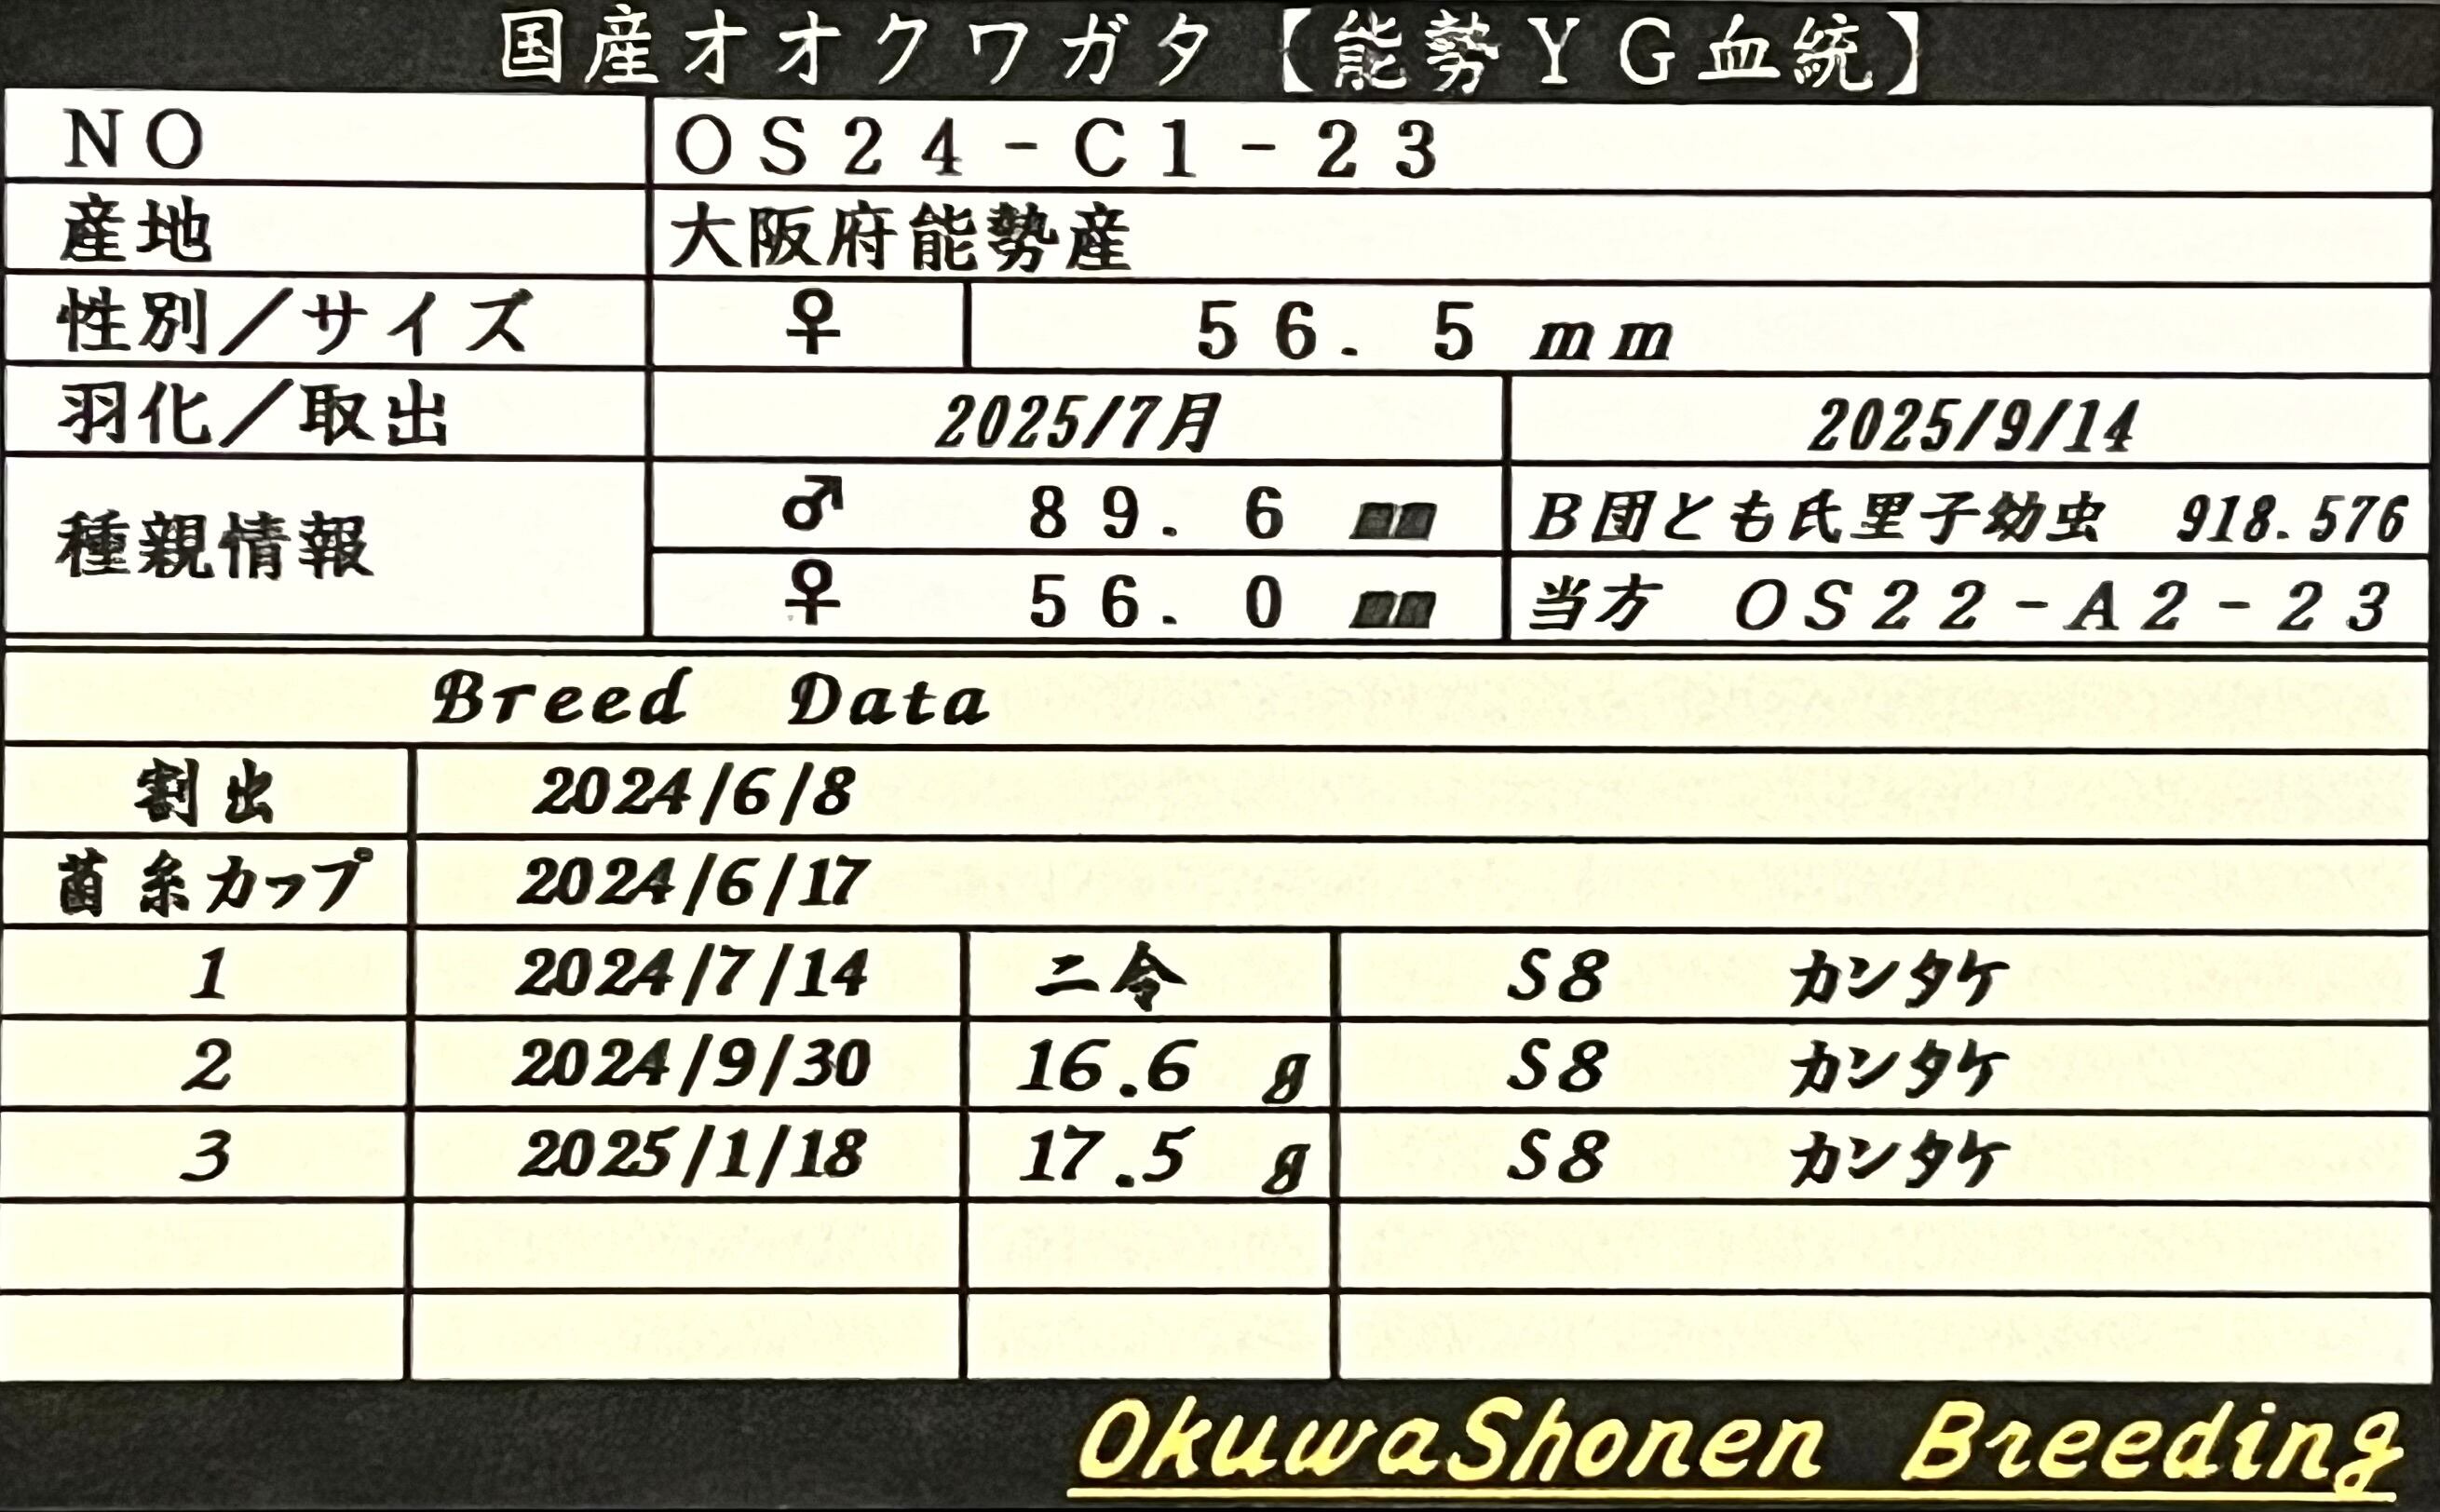 国産オオクワガタ【能勢YG血統】
NO OS24-C1-23
産地 大阪府能勢産
性別/サイズ ♀ 56.5 mm
羽化/取出 2025/7月 2025/9/14
種親情報
♂ 89.6 ㎜ B団とも氏里子幼虫 918.576
♀ 56.0 ㎜ 当方 OS22-A2-23
Breed Data
割出 2024/6/8
菌糸カップ 2024/6/17
1 2024/7/14 二令 S8 カンタケ
2 2024/9/30 16.6 g S8 カンタケ
3 2025/1/18 17.5 g S8 カンタケ
OkuwaShonen Breeding